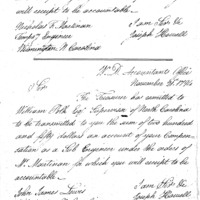 will receipt to be accountable.
Nicholas F. Martinon I am Sir &c
Tempy Engineer Joseph Howell
Wilmington N. Carolina
W. D. Accountants Office
November 28th 1794
Sir
The Treasurer has remitted to
William Polk Esq. Supervisor of North Carolina
to be transmitted to you the sum of two hundred
and fifty dollars on account of your Compen-
sation as a Sub Engineer under the orders of
Mr. Martinon for which you will receipt to be
accountable.
I am Sir &c
John James Joseph Howell